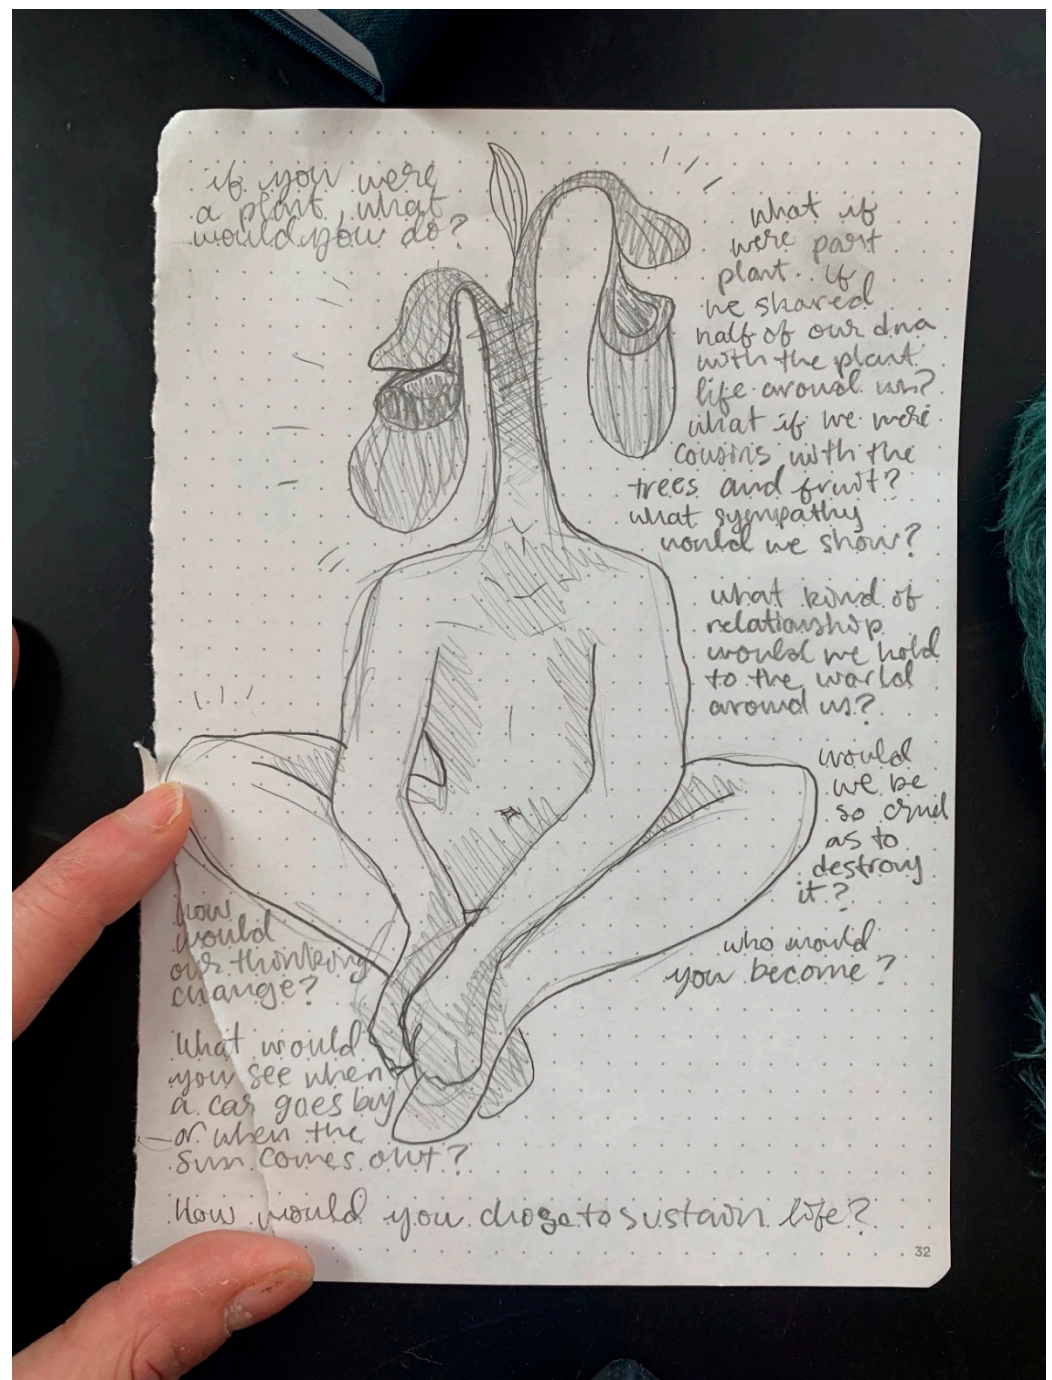 if you were
a plant, what
would you do?
what if
were part
plant. if
we shared
half of our dna
with the plant
life around us?
what if we were
cousins with the
trees and fruit?
what sympathy
would we show?
what kind of
relationship
would we hold
to the world
around us?
would
we be
so cruel
as to
destroy
it?
who would
you become?
how
would
our thinking
change?
What would
you see when
a car goes buy
or when the
sun comes out?
How would you chose to sustain life?
32